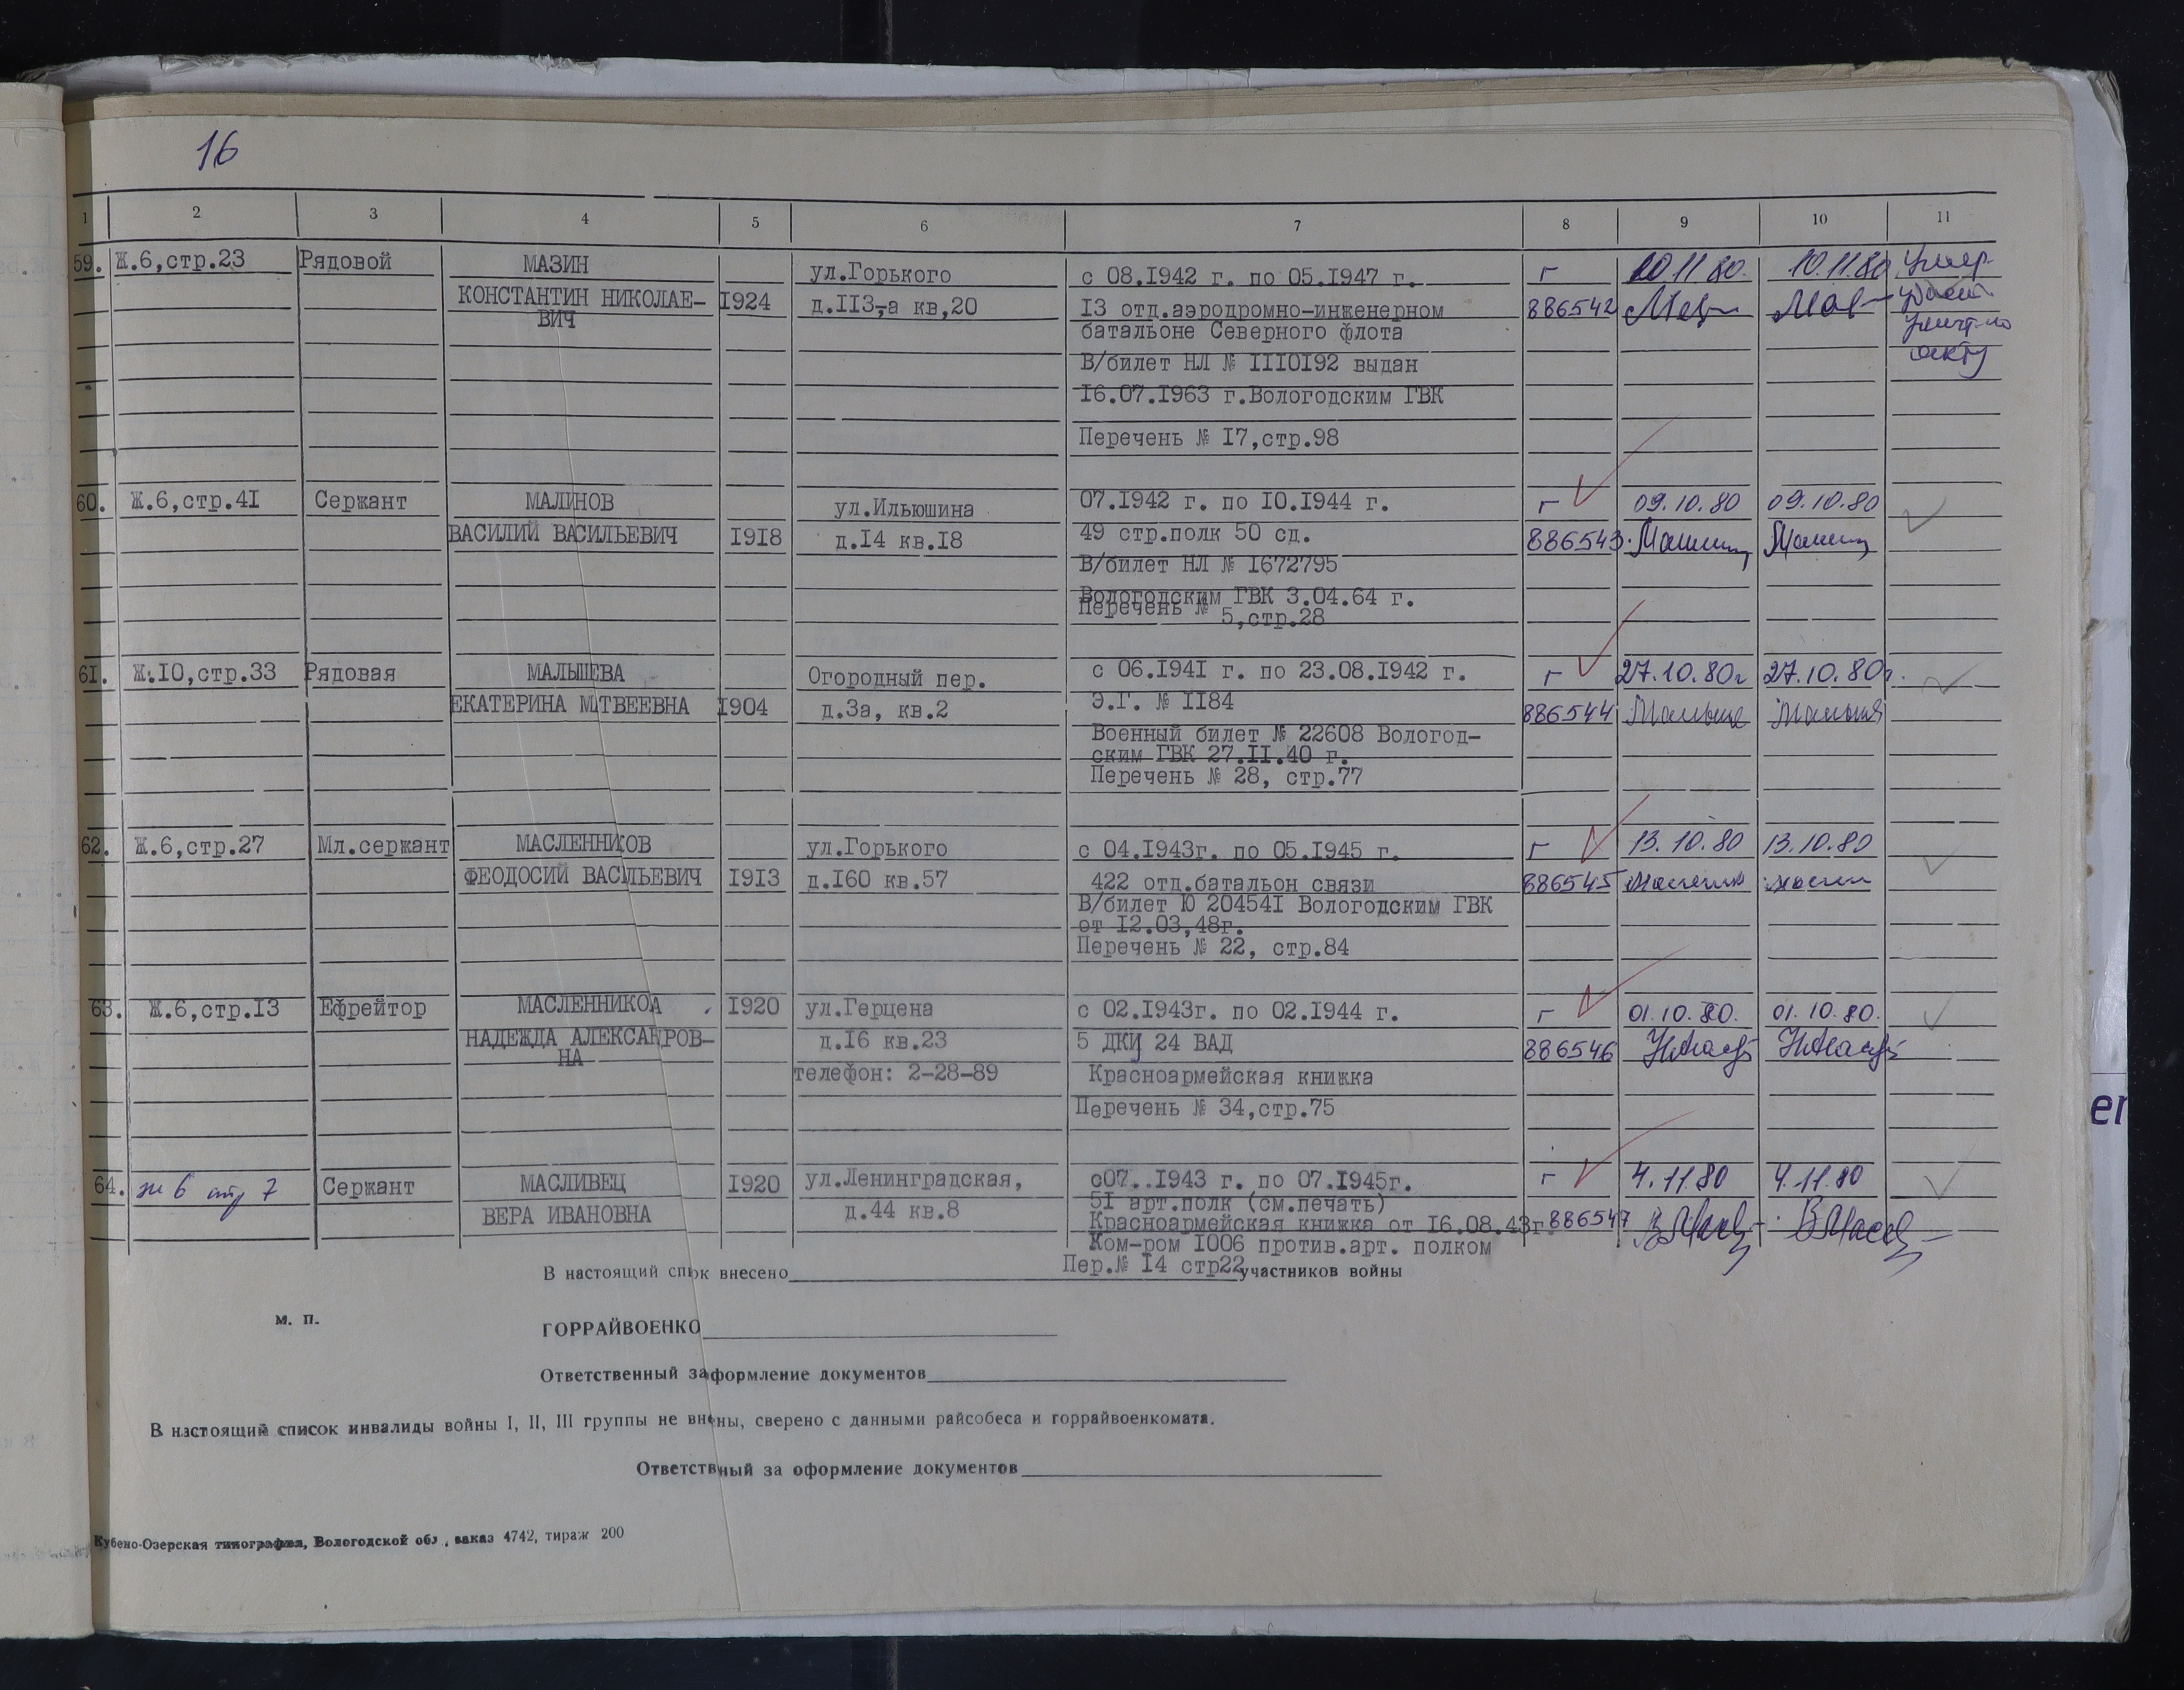 16
1 2 3 4 5 6 7 8 9 10 11
59. Ж.6,стр.23 Рядовой МАЗИН ул.Горького с 08.1942 г. по 05.1947 г. г 10.11.80. 10.11.80 Умер
КОНСТАНТИН НИКОЛАЕ- 1924 д.113,-а кв,20 13 отд.аэродромно-инженерном 886542
ВИЧ батальоне Северного флота
В/билет НЛ № 1110192 выдан акту
16.07.1963 г.Вологодским ГВК
Перечень № 17,стр.98
60. Ж.6,стр.41 Сержант МАЛИНОВ ул.Ильюшина 07.1942 г. по 10.1944 г. г 09.10.80 09.10.80
ВАСИЛИЙ ВАСИЛЬЕВИЧ 1918 д.14 кв.18 49 стр.полк 50 сд. 886543
В/билет НЛ № 1672795
Вологодским ГВК 3.04.64 г.
Перечень № 5,стр.28
61. Ж.10,стр.33 Рядовая МАЛЫШЕВА Огородный пер. с 06.1941 г. по 23.08.1942 г. г 27.10.80г 27.10.80г.
ЕКАТЕРИНА МТВЕЕВНА 1904 д.3а, кв.2 Э.Г. № 1184 886544
Военный билет № 22608 Вологод-
ским ГВК 27.11.40 г.
Перечень № 28, стр.77
62. Ж.6,стр.27 Мл.сержант МАСЛЕННИКОВ ул.Горького с 04.1943г. по 05.1945 г. г 13.10.80 13.10.80
ФЕОДОСИЙ ВАСИЛЬЕВИЧ 1913 д.160 кв.57 422 отд.батальон связи 886545
В/билет Ю 204541 Вологодским ГВК
от 12.03,48г.
Перечень № 22, стр.84
63. Ж.6,стр.13 Ефрейтор МАСЛЕННИКОА 1920 ул.Герцена с 02.1943г. по 02.1944 г. г 01.10.80. 01.10.80.
НАДЕЖДА АЛЕКСАНРОВ- д.16 кв.23 5 ДКЦ 24 ВАД 886546
НА
телефон: 2-28-89 Красноармейская книжка
Перечень № 34,стр.75
64. ж 6 стр 7 Сержант МАСЛИВЕЦ 1920 ул.Ленинградская, с07..1943 г. по 07.1945г. г 4.11.80 4.11.80
51 арт.полк (см.печать)
ВЕРА ИВАНОВНА д.44 кв.8 Красноармейская книжка от 16.08.43г. 886547
Ком-ром 1006 против.арт. полком
Пер.№ 14 стр22
В настоящий спок внесено участников войны
М. П.
ГОРРАЙВОЕНКО
Ответственный заформление документов
В настоящий список инвалиды войны I, II, III группы не внены, сверено с данными райсобеса и горрайвоенкомата.
Ответствный за оформление документов
Кубено-Озерская типография, Вологодской обл., заказ 4742, тираж 200